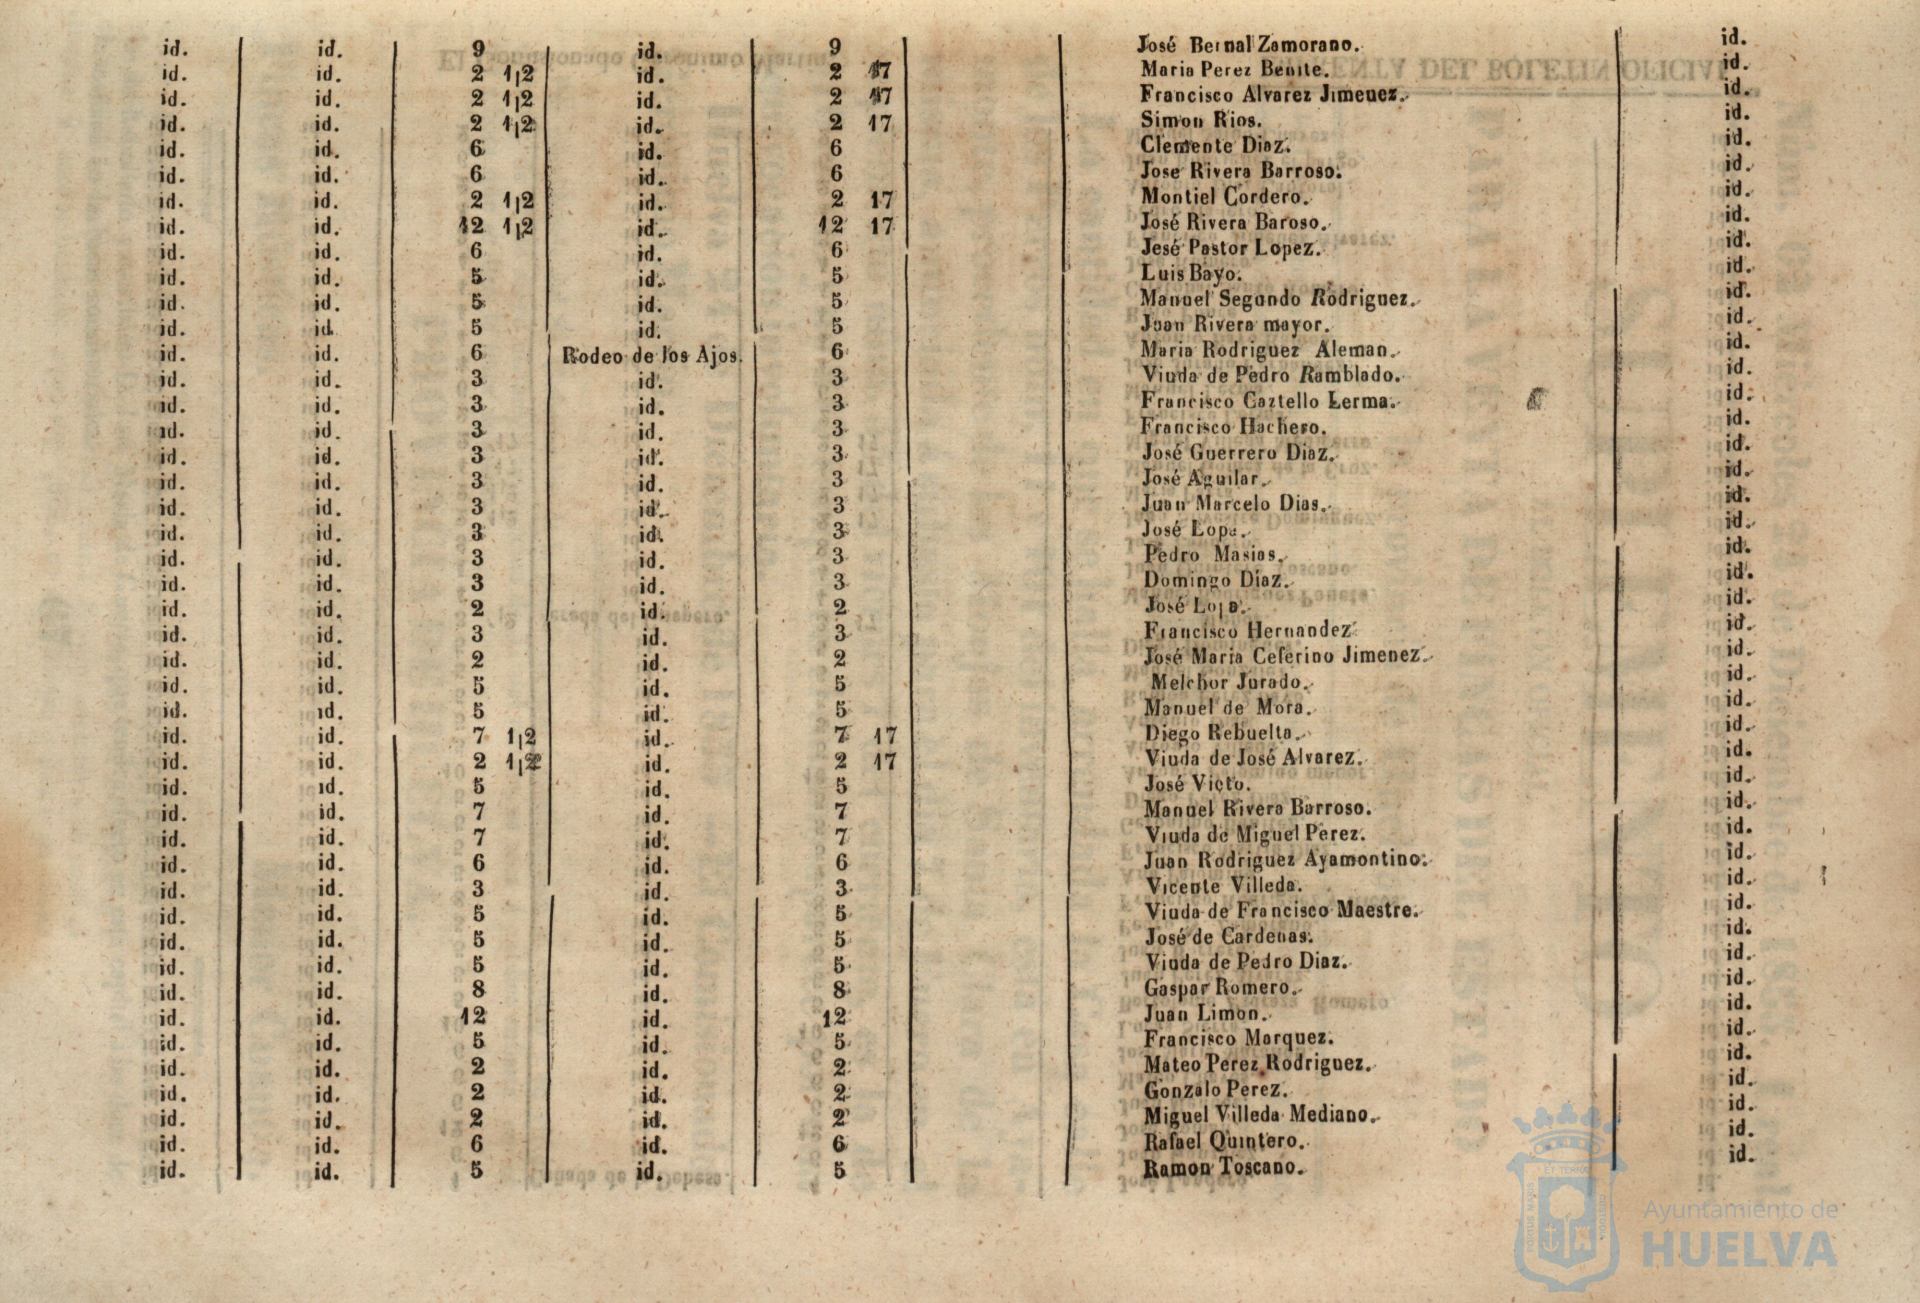 id. id. 9 id. 9 José Bernal Zamorano. id.
id. id. 2 1|2 id. 2 17 Maria Perez Benite. id.
id. id. 2 1|2 id. 2 17 Francisco Alvarez Jimenez. id.
id. id. 2 1|2 id. 2 17 Simon Rios. id.
id. id. 6 id. 6 Clemente Diaz. id.
id. id. 6 id. 6 Jose Rivera Barroso. id.
id. id. 2 1|2 id. 2 17 Montiel Cordero. id.
id. id. 12 1|2 id. 12 17 José Rivera Baroso. id.
id. id. 6 id. 6 Jesé Pastor Lopez. id.
id. id. 5 id. 5 Luis Bayo. id.
id. id. 5 id. 5 Manuel Segundo Rodriguez. id.
id. id. 5 id. 5 Juan Rivera mayor. id.
id. id. 6 Rodeo de los Ajos. 6 Maria Rodriguez Aleman. id.
id. id. 3 id. 3 Viuda de Pedro Ramblado. id.
id. id. 3 id. 3 Francisco Caztello Lerma. id.
id. id. 3 id. 3 Francisco Hachero. id.
id. id. 3 id. 3 José Guerrero Diaz. id.
id. id. 3 id. 3 José Aguilar. id.
id. id. 3 id. 3 Juan Marcelo Dias. id.
id. id. 3 id. 3 José Lopa. id.
id. id. 3 id. 3 Pedro Masias. id.
id. id. 3 id. 3 Domingo Díaz. id.
id. id. 2 id. 2 José Lopa. id.
id. id. 3 id. 3 Francisco Hernandez id.
id. id. 2 id. 2 José Maria Ceferino Jimenez. id.
id. id. 5 id. 5 Melchor Jurado. id.
id. id. 5 id. 5 Manuel de Mora. id.
id. id. 7 1|2 id. 7 17 Diego Rebuelta. id.
id. id. 2 1|2 id. 2 17 Viuda de José Alvarez. id.
id. id. 5 id. 5 José Victo. id.
id. id. 7 id. 7 Manuel Rivera Barroso. id.
id. id. 7 id. 7 Viuda de Miguel Perez. id.
id. id. 6 id. 6 Juan Rodriguez Ayamontino. id.
id. id. 3 id. 3 Vicente Villeda. id.
id. id. 5 id. 5 Viuda de Francisco Maestre. id.
id. id. 5 id. 5 José de Cardenas. id.
id. id. 5 id. 5 Viuda de Pedro Diaz. id.
id. id. 8 id. 8 Gaspar Romero. id.
id. id. 12 id. 12 Juan Limon. id.
id. id. 5 id. 5 Francisco Marquez. id.
id. id. 2 id. 2 Mateo Perez Rodriguez. id.
id. id. 2 id. 2 Gonzalo Perez. id.
id. id. 2 id. 2 Miguel Villeda Mediano. id.
id. id. 6 id. 6 Rafael Quintero. id.
id. id. 5 id. 5 Ramon Toscano. id.
Ayuntamiento de
HUELVA